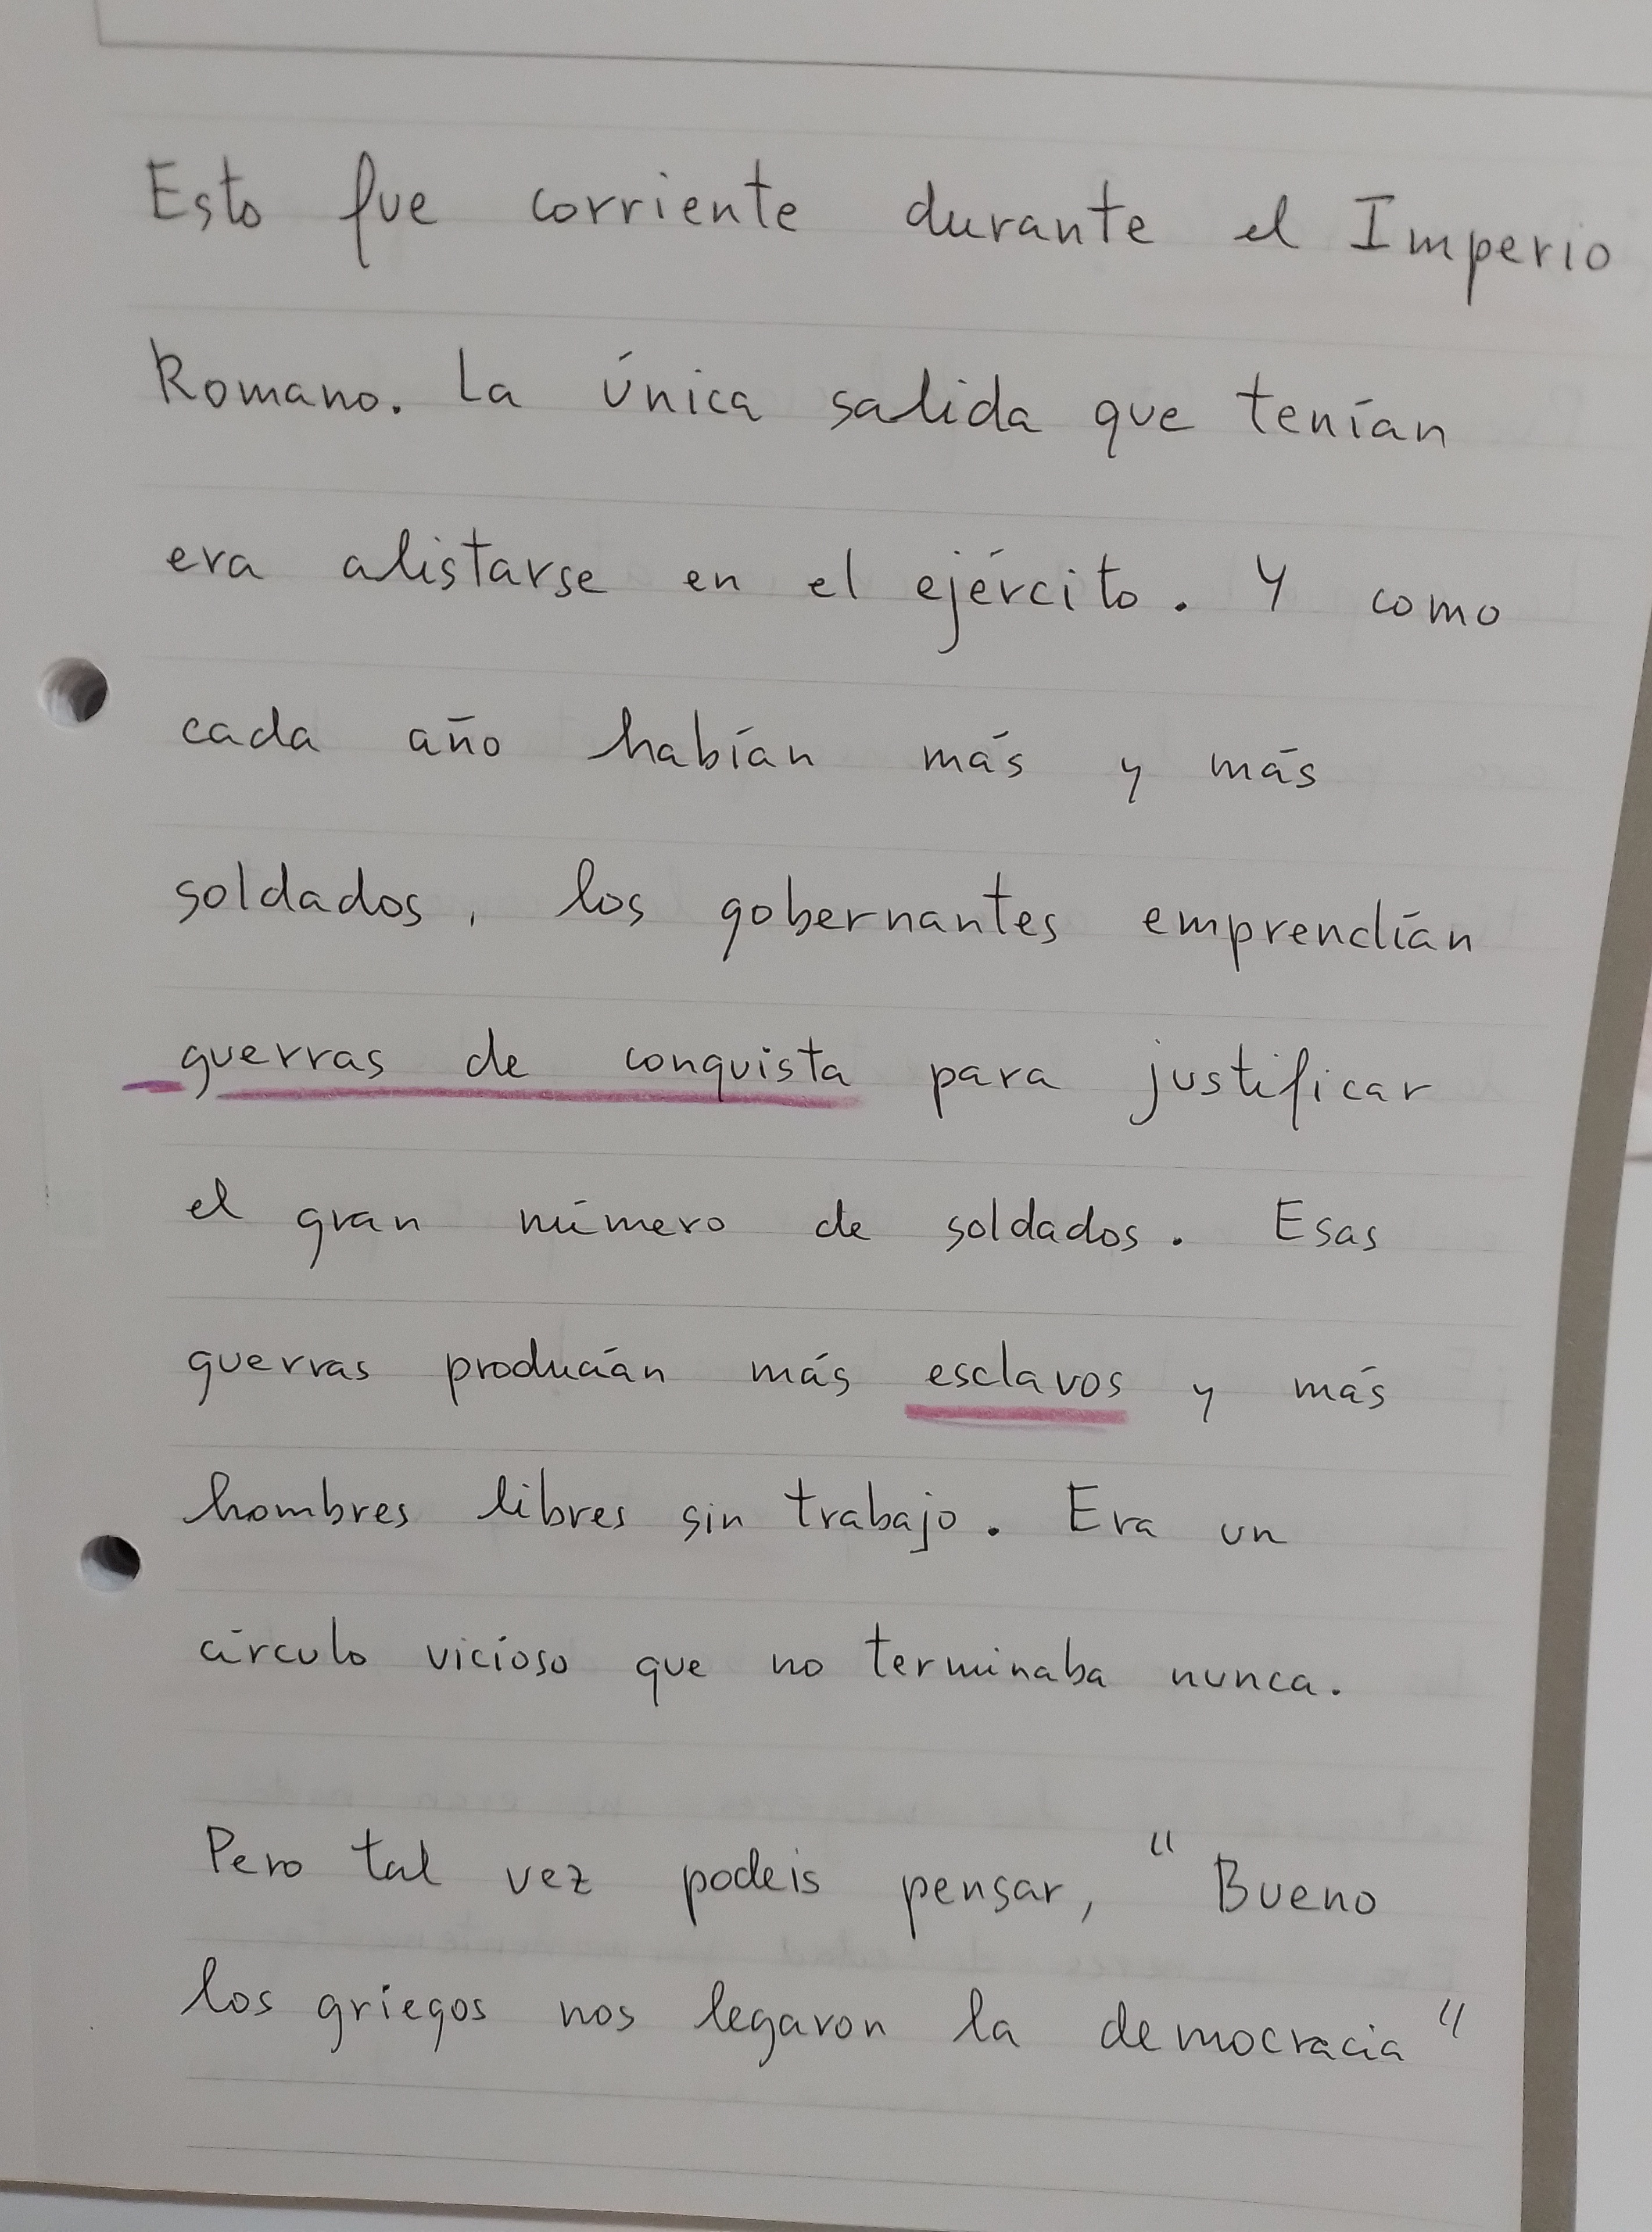 Esto fue corriente durante el Imperio
Romano. La única salida que tenían
era alistarse en el ejército. Y como
cada año habían más y más
soldados, los gobernantes emprendían
guerras de conquista para justificar
el gran número de soldados. Esas
guerras producían más esclavos y más
hombres libres sin trabajo. Era un
círculo vicioso que no terminaba nunca.
Pero tal vez podeis pensar, "Bueno
los griegos nos legaron la democracia"